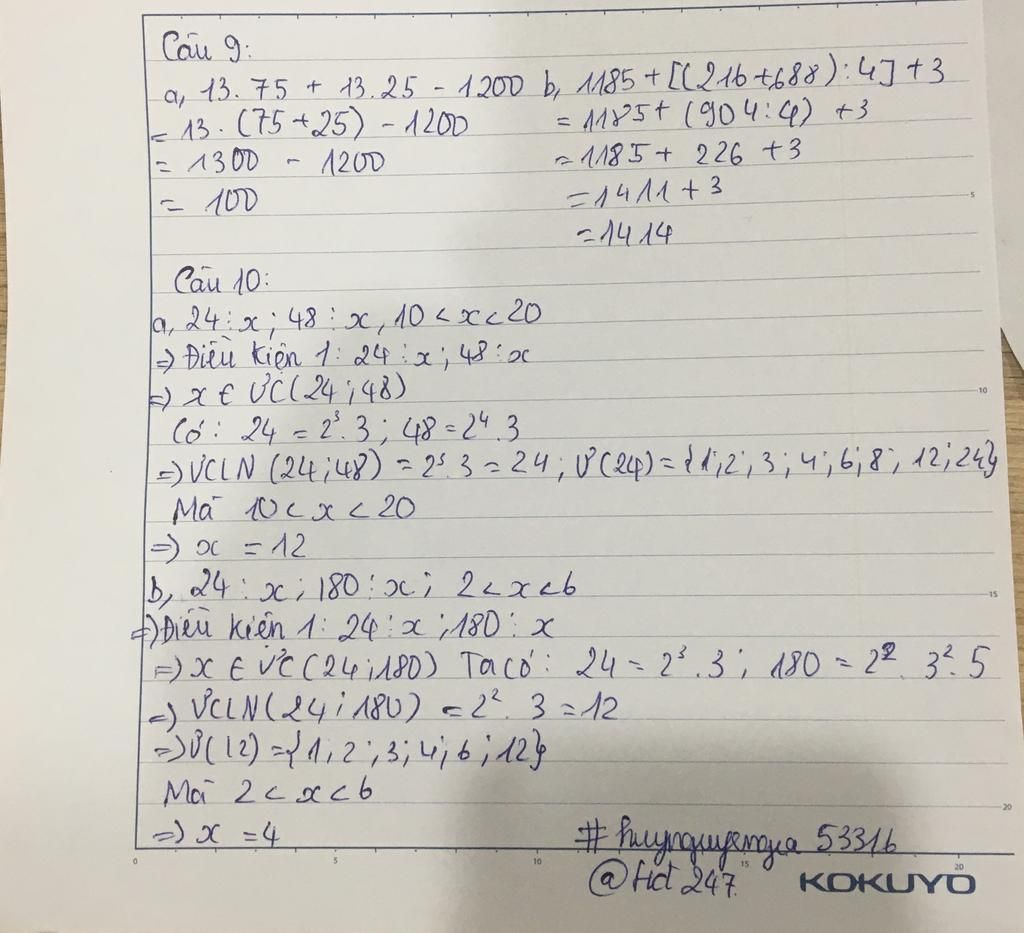 Câu 9:
a, 13.75 + 13.25 - 1200 b, 1185 + [(216+688):4] + 3
= 13.(75+25) - 1200 = 1185 + (904:4) + 3
= 1300 - 1200 = 1185 + 226 + 3
= 100 = 1411 + 3
= 1414
Câu 10:
a, 24⋮x; 48⋮x, 10 < x < 20
=> Điều kiện 1: 24⋮x; 48⋮x
=> x ∈ ƯC(24;48)
Có: 24 = 2³.3; 48 = 2⁴.3
=> ƯCLN (24;48) = 2³.3 = 24; Ư(24) = {1;2;3;4;6;8;12;24}
Mà 10 < x < 20
=> x = 12
b, 24⋮x; 180⋮x; 2 < x < 6
=> Điều kiện 1: 24⋮x; 180⋮x
=> x ∈ ƯC(24;180) Ta có: 24 = 2³.3; 180 = 2².3².5
=> ƯCLN(24;180) = 2².3 = 12
=> Ư(12) = {1;2;3;4;6;12}
Mà 2 < x < 6
=> x = 4
#huynguyengia 53316
@hd 247
5
10
15
20
0 5 10 15 20
KOKUYO